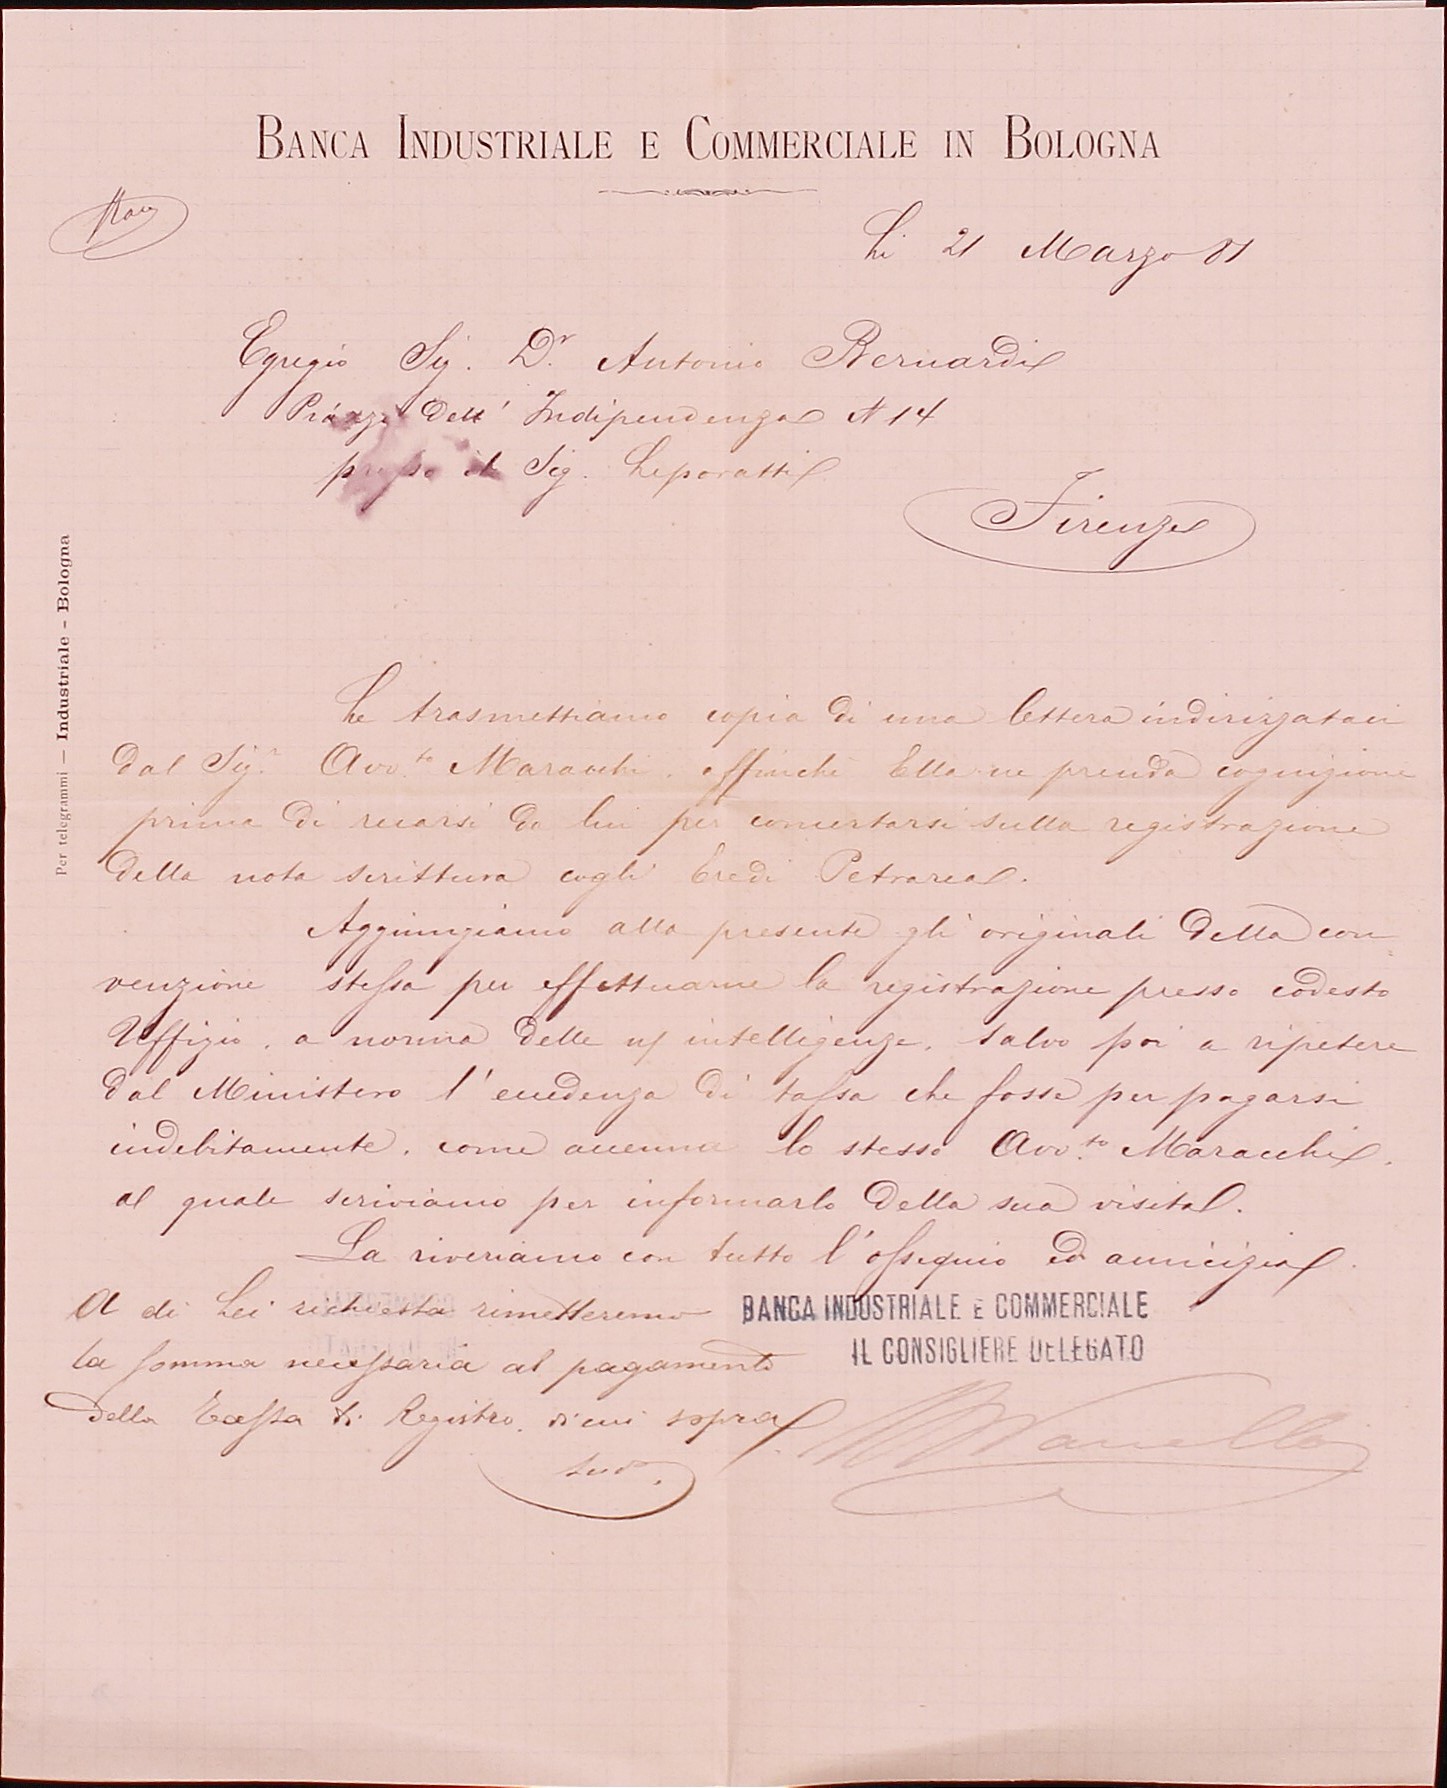 BANCA INDUSTRIALE E COMMERCIALE IN BOLOGNA
Li 21 Marzo 81
Egregio Sig. Dr. Antonio Bernardi
Piazza dell' Indipendenza N 14
presso il Sig. Leporatti
Firenze
Per telegrammi — Industriale - Bologna
Le trasmettiamo copia di una lettera indirizzataci
dal Sigr. Avvto Maracchi, affinché Ella ne prenda cognizione
prima di recarsi da lui per concertarsi sulla registrazione
della nota scrittura cogli Eredi Petrarca.
Aggiungiamo alla presente gli originali della con
venzione stessa per effettuarne la registrazione presso codesto
Uffizio, a norma delle intelligenze, salvo poi a ripetere
dal Ministero l'eccedenza di tassa che fosse per pagarsi
indebitamente, come accenna lo stesso Avvto Maracchi,
al quale scriviamo per informarlo della sua visita.
La riveriamo con tutto l'ossequio ed amicizia.
A di Lei richiesta rimetteremo
la somma necessaria al pagamento
della Tassa di Registro, di cui sopra
BANCA INDUSTRIALE E COMMERCIALE
IL CONSIGLIERE DELEGATO